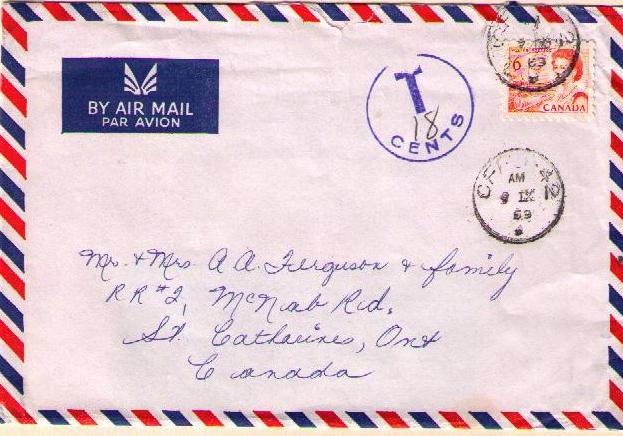 BY AIR MAIL
PAR AVION
T
18
CENTS
6
CANADA
69
AM
9 IX
69
Mr. & Mrs. A. A. Ferguson & family
RR #2, McNab Rd.
St. Catharines, Ont
Canada